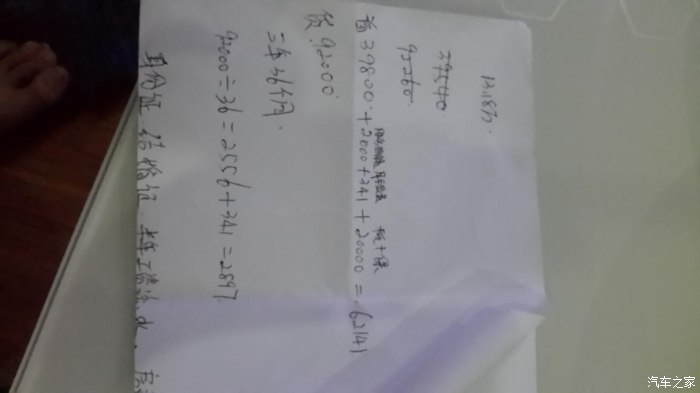 13.18万.
39540
92260
首 39800.+2000+341+20000=.62141
贷.92000
三年36个月.
92000÷36=2556+341=2897
身份证 结婚证. 半年工资流水.
汽车之家